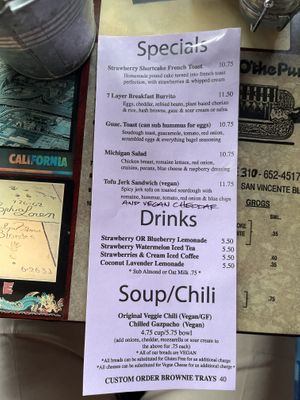 Specials
Strawberry Shortcake French Toast 10.75
Homemade pound cake turned into french toast
perfection, with strawberries & whipped cream
7 Layer Breakfast Burrito 11.50
Eggs, cheddar, refried beans, plant based chorizo
& rice, hash browns, guac & sour cream or salsa
Guac. Toast (can sub hummus for eggs) 10.75
Sourdough toast, guacamole, tomato, red onion,
scrambled eggs & everything bagel seasoning
Michigan Salad 10.75
Chicken breast, romaine lettuce, red onion,
craisins, pecans, blue cheese & raspberry dressing
Tofu Jerk Sandwich (vegan) 11.75
Spicy jerk tofu on toasted sourdough with
romaine, hummus, tomato, red onion & blue chips
AND VEGAN CHEDDAR
Drinks
Strawberry OR Blueberry Lemonade 5.50
Strawberry Watermelon Iced Tea 5.50
Strawberries & Cream Iced Coffee 5.50
Coconut Lavender Lemonade 5.50
* Sub Almond or Oat Milk .75 *
Soup/Chili
Original Veggie Chili (Vegan/GF)
Chilled Gazpacho (Vegan)
4.75 cup/5.75 bowl
(add onions, cheddar, mozzarella or sour cream to
the above for .75 each)
* All of our breads are VEGAN
*All breads can be substituted for Gluten Free for an additional charge
*All cheeses can be substituted for Vegan Cheese for an additional charge
CUSTOM ORDER BROWNIE TRAYS 40
CALIFORNIA
O'the Pu
310-652-451
SAN VINCENTE B
GROGS